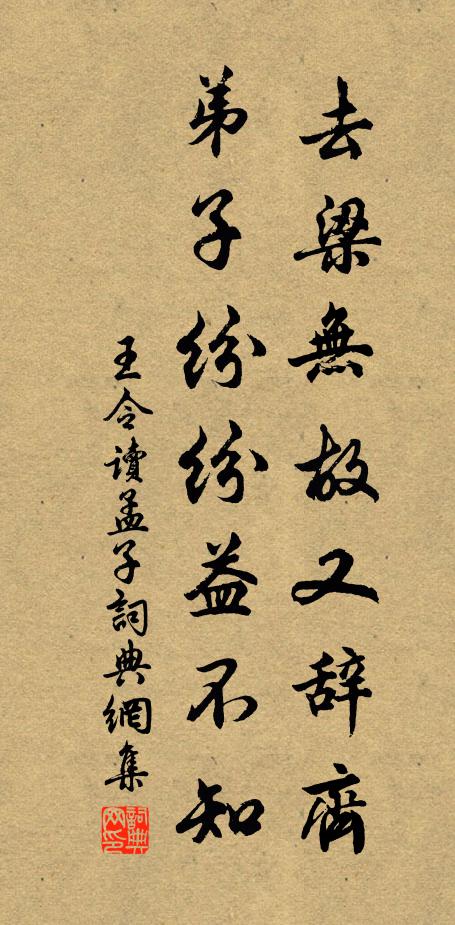 去梁無故又辞齊
弟子紛紛益不知
王令讀孟子詞典網集
詞典网印